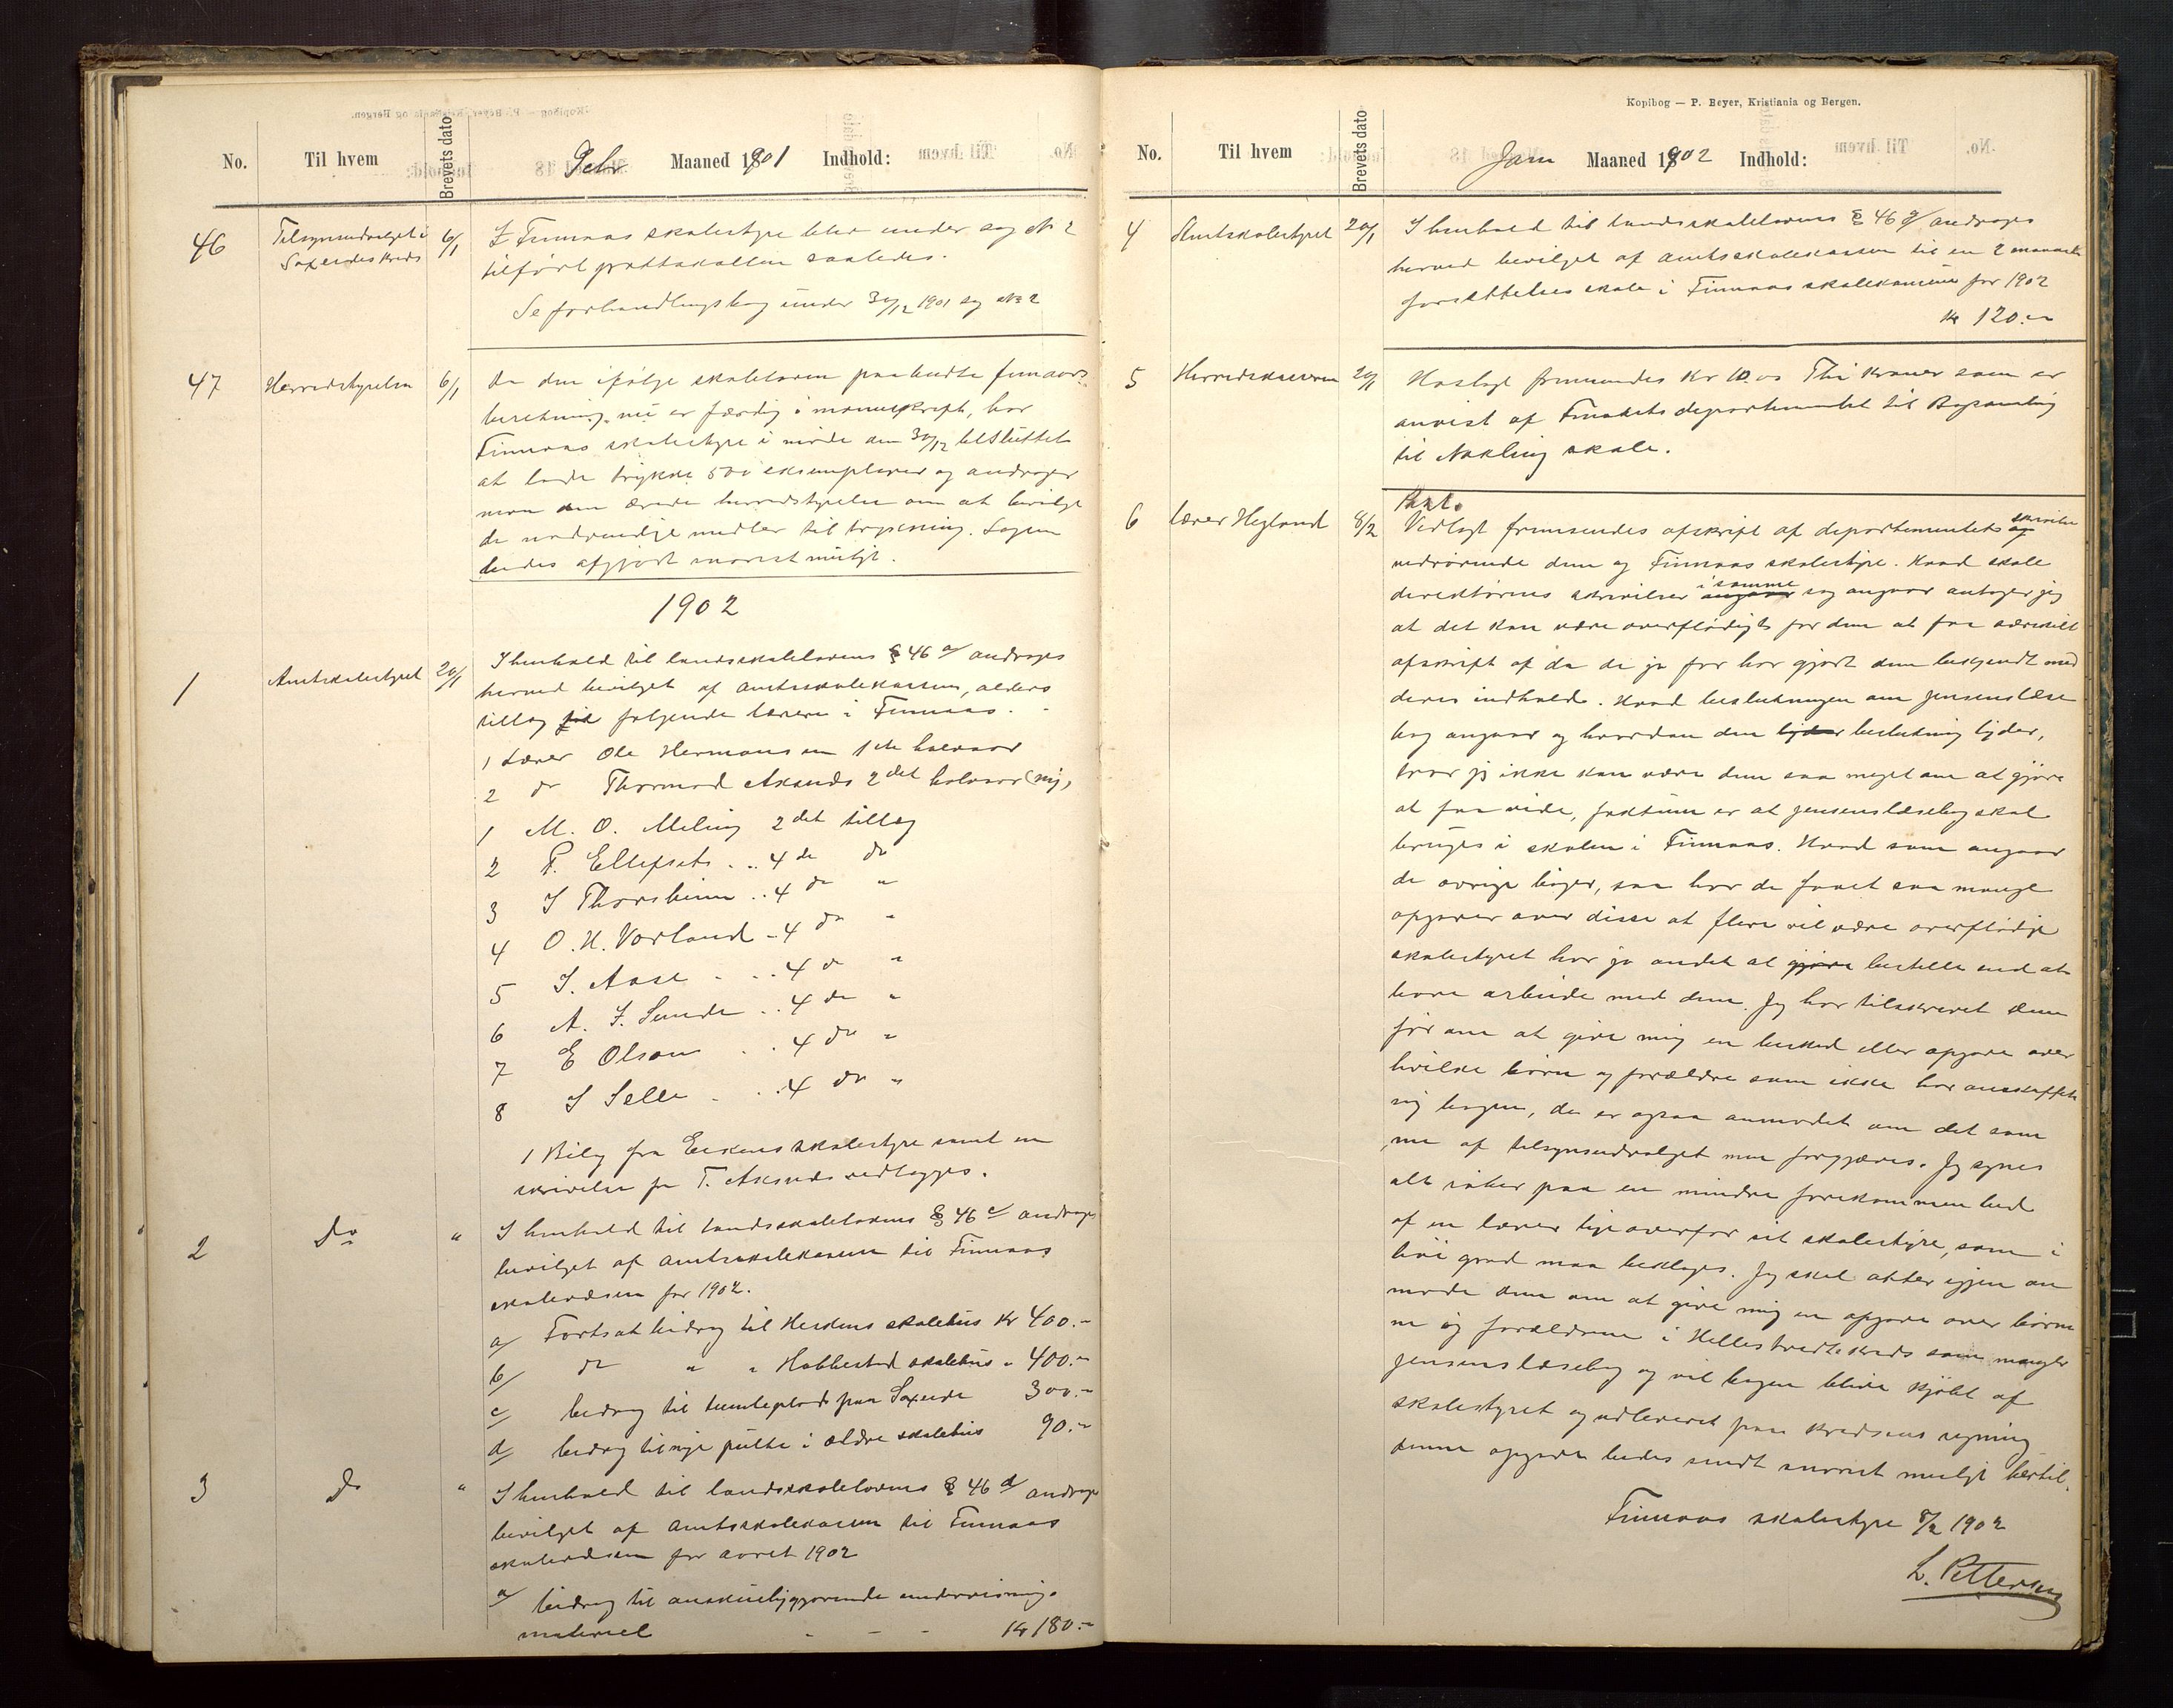 No. Til hvem Brevets dato Febr Maaned 1901 Indhold:
46 Tilsynsudvalget i 6/1 I Finnaas skolestyre blev under sag № 2
Saxeides kreds tilført protokollen saaledes.
Se forhandlingsbog under 30/12 1901 sag № 2
47 Herredstyrelsen 6/1 Da den ifølge skoleloven paabudte femaars
beretning nu er færdig i manuskript, har
Finnaas skolestyre i møde den 30/12 besluttet
at lade trykke 500 eksemplarer og andrager
man den ærede herredstyrelse om at bevilge
de nødvendige midler til trykning. Sagen
bedes afgjort snarest muligt.
1902
1 Amtskolestyret 20/1 I henhold til landsskolelovens § 46 a/ andrages
herved bevilget af amtsskolekassen, alders
tillæg til følgende lærere i Finnaas.
1 Lærer Ole Hermansen 1ste halvaar
2 do Thormod Aksnæs 2det halvaar (ny)
1 M. O. Meling 2det tillæg
2 P. Ellefsets .. 4de do
3 I Thorsheim .. 4 do "
4 O. H. Vorland .. 4 do "
5 I. Aase . .. 4 do "
6 A. I. Sunde .. 4 de "
7 E Olson . . 4 do "
8 I Selle . . 4 do "
1 Bilag fra skolestyre samt en
skrivelse fra T. Aksnæs vedlægges.
2 Do " I henhold til landsskolelovens § 46 c/ andrages
bevilget af amtsskolekassen til Finnaas
skolevæsen for 1902.
a/ Fortsat bidrag til skolehus Kr 400.-
b/ do " " Hobbestad skolehus " 400.-
c/ bidrag til tumleplads paa Saxeide 300.-
d/ bidrag til nye pulte i ældre skolehus 90.-
3 Do " I henhold til landsskolelovens § 46 d/ andrages
bevilget af amtsskolekassen til Finnaas
skolevæsen for aaret 1902
a/ bidrag til anskueliggjørende undervisnings
materiel - - - Kr 180.-
Kopibog — P. Beyer, Kristiania og Bergen.
No. Til hvem Brevets dato Jan Maaned 1902 Indhold:
4 Amtskolestyret 20/1 I henhold til landsskolelovens § 46 andrages
herved bevilget af amtsskolekassen til en 2 maaneds
forsættelsesskole i Finnaas skolekommune for 1902
Kr 120.-
5 Herredskasseren 20/1 Hoslagt fremsendes Kr 10.00 Thi kroner som er
anvist af departementet til Bogsamling
til Nokling skole.
6 Lærer Hegland 8/2 Vedlagt fremsendes afskrift af departementets skrivelse
vedrørende dem og Finnaas skolestyre. Hvad skole
direktørens skrivelser angaar i samme sag angaar antager jeg
at det kan være overflødigt for dem at faa særskilt
afskrift af da de jo før har gjort dem bekjendt med
deres indhold. Hvad beslutningen om Jensens læse
bog angaar og hvordan den lyder beslutning lyder,
tror jeg ikke kan være dem saa meget om at gjøre
at faa vide, faktum er at Jensens læsebog skal
bruges i skolen i Finnaas. Hvad som angaar
de øvrige bøger, saa har de faaet saa mange
opgaver over disse at flere vil være overflødige
skolestyret har jo andet at gjøre bestille end at
have arbeide med dem. Jeg har tilskrevet dem
før om at give mig en besked eller opgave over
hvilke børn og forældre som ikke har anskaffet
sig bogen, de er ogsaa anmodet om det sam
me af tilsynsudvalget men forgjæves. Jeg synes
alt tyder paa en mindre forekommenhed
af en lærer lige overfor sit skolestyre, som i
høi grad maa beklages. Jeg skal atter igjen an
mode dem om at give mig en opgave over børne
ne og forældrene i Hellesbredtskreds som mangler
Jensens læsebog og vil bogen blive kjøbt af
skolestyret og udleveret paa kredsens regning
denne opgave bedes sendt snarest muligt hertil.
Finnaas skolestyre 8/2 1902
L. Pettersen